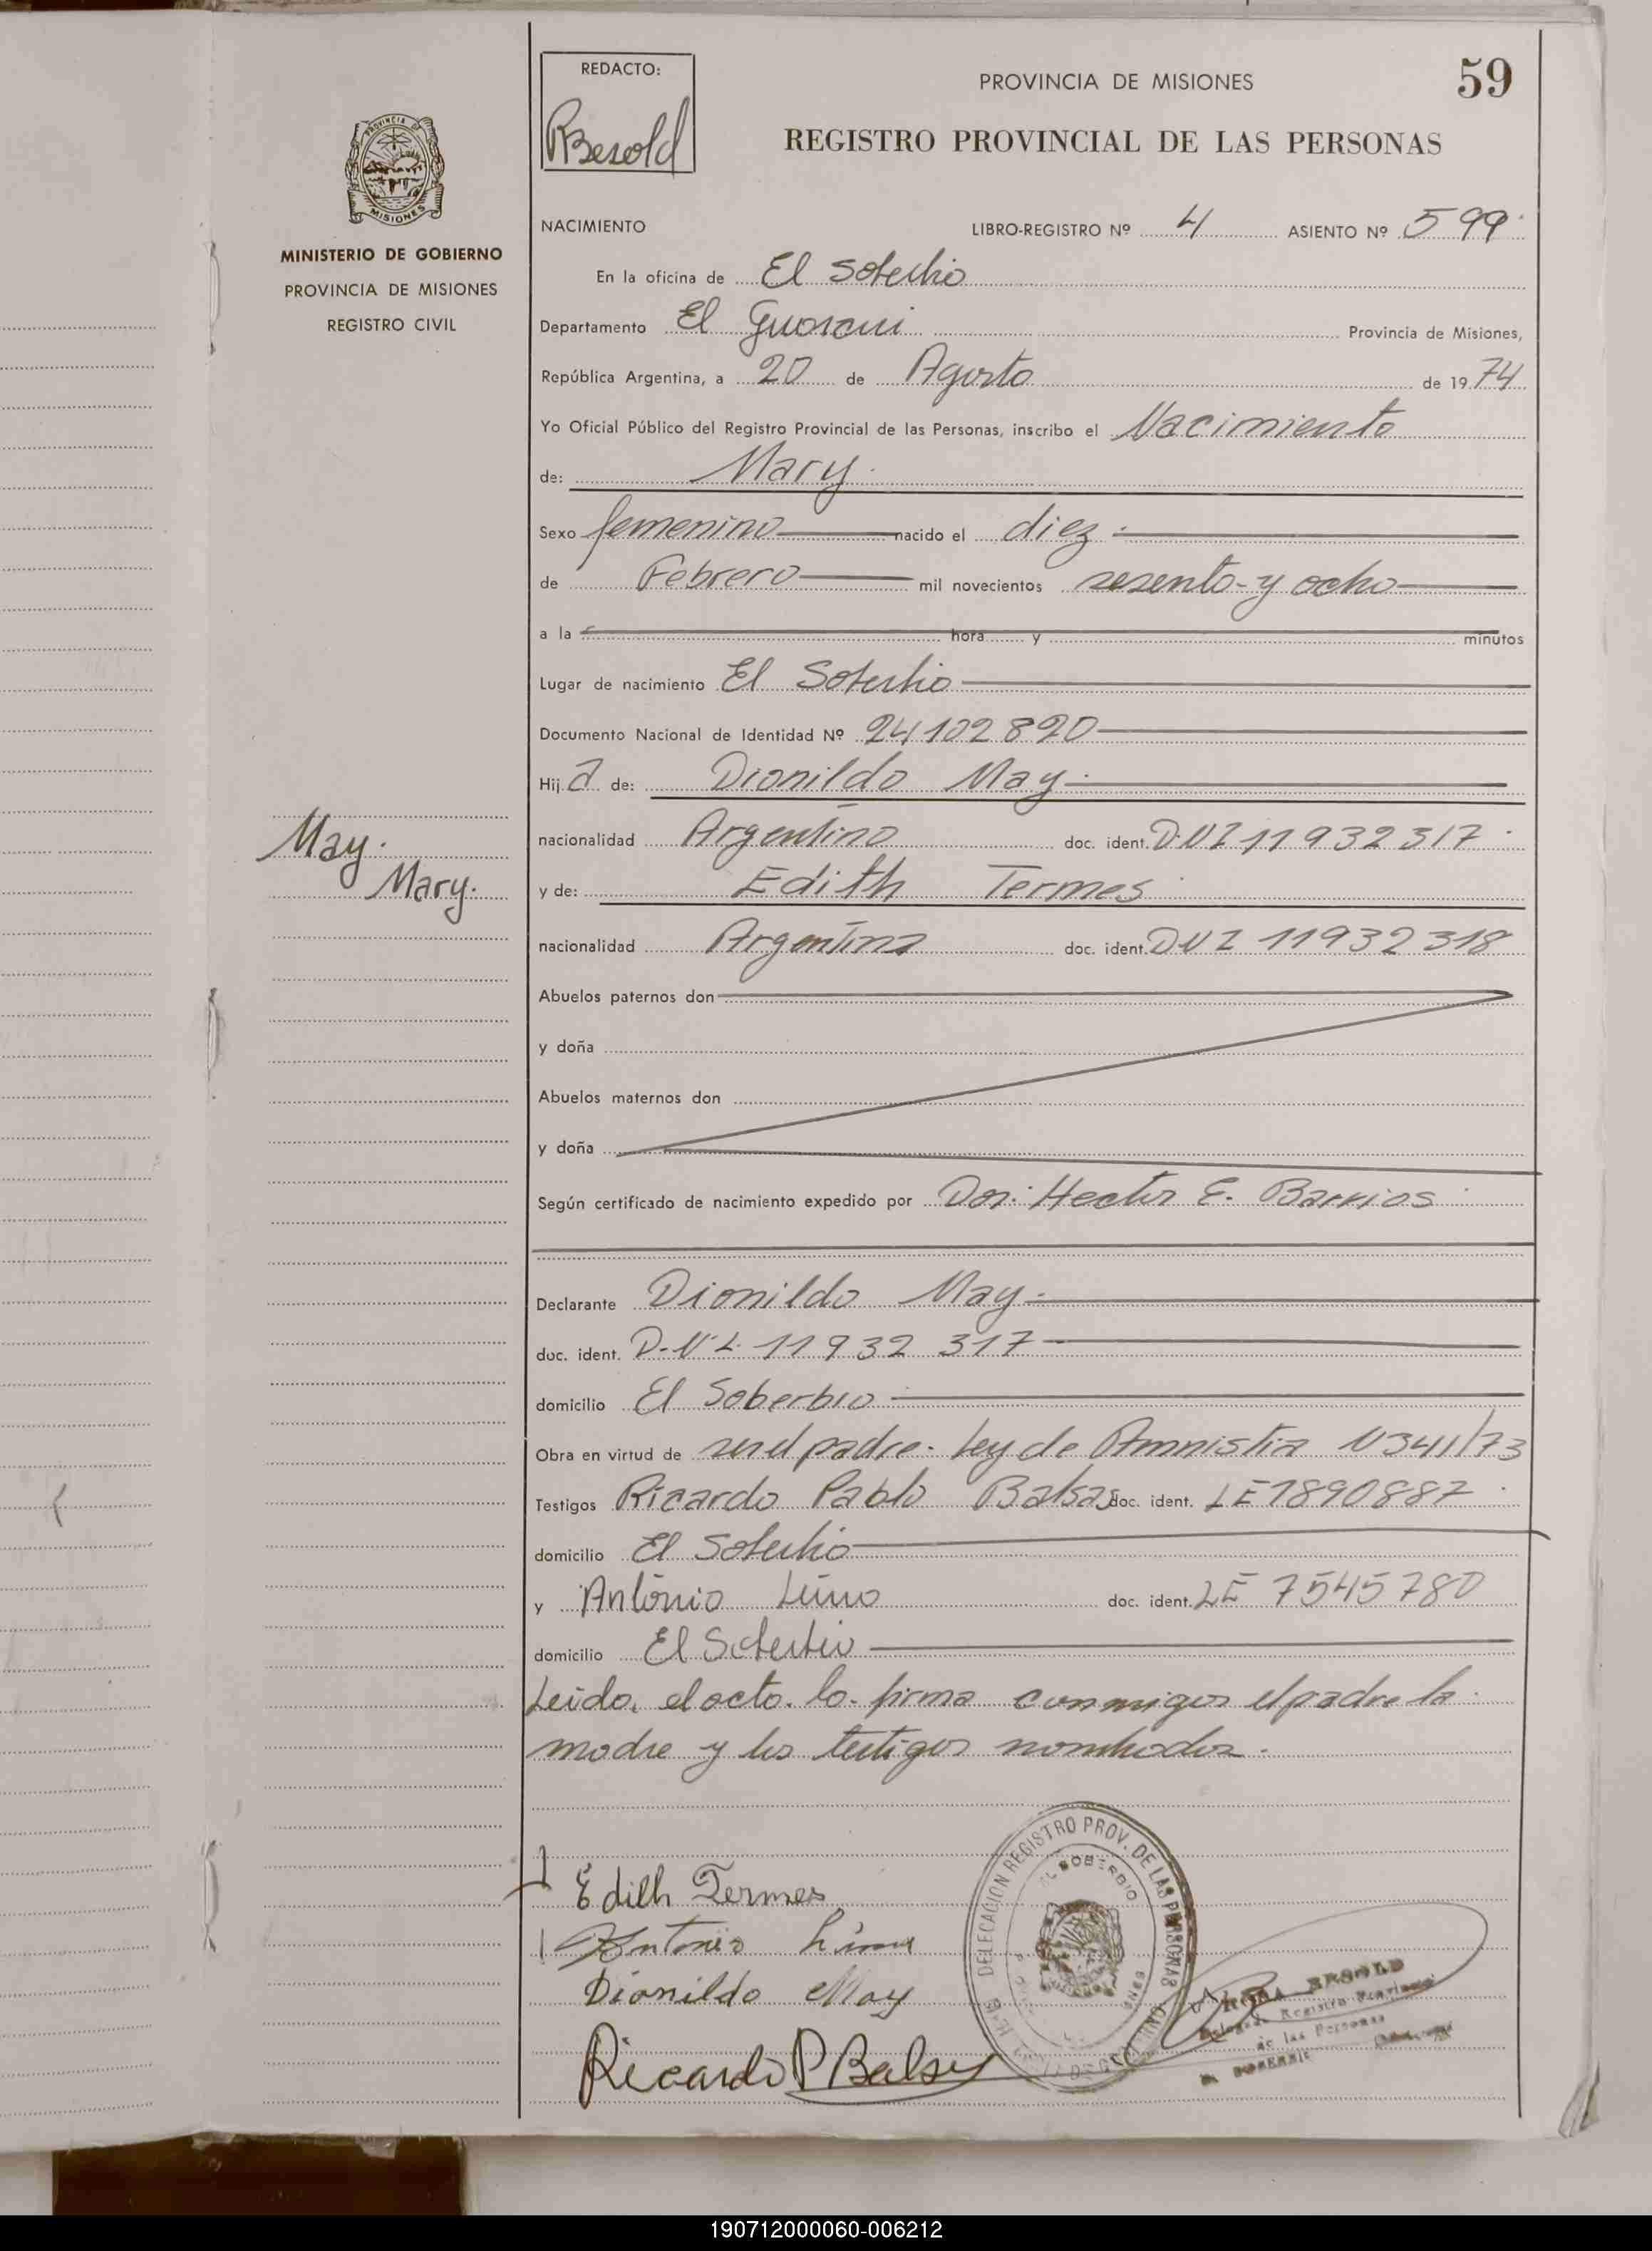 REDACTO:
RBesold
PROVINCIA DE MISIONES
59
REGISTRO PROVINCIAL DE LAS PERSONAS
PROVINCIA DE
MISIONES
MINISTERIO DE GOBIERNO
PROVINCIA DE MISIONES
REGISTRO CIVIL
NACIMIENTO LIBRO-REGISTRO Nº 4 ASIENTO Nº 599
En la oficina de El Soberbio
Departamento El Guarani Provincia de Misiones,
República Argentina, a 20 de Agosto de 1974
Yo Oficial Público del Registro Provincial de las Personas, inscribo el Nacimiento
de: Mary.
Sexo femenino nacido el diez.
de Febrero mil novecientos sesenta y ocho
a la hora y minutos
Lugar de nacimiento El Soberbio
Documento Nacional de Identidad Nº 24102820
Hija de: Dionildo May.
nacionalidad Argentino doc. ident. D.N.I 11932317
May.
Mary.
y de: Edith Termes
nacionalidad Argentina doc. ident. DNI 11932318
Abuelos paternos don
y doña
Abuelos maternos don
y doña
Según certificado de nacimiento expedido por Don: Hector E. Barrios
Declarante Dionildo May.
doc. ident. D.N.I. 11932317
domicilio El Soberbio
Obra en virtud de ser el padre. Ley de Amnistia N341/73
Testigos Ricardo Pablo Balsas doc. ident. LE 7890887
domicilio El Soberbio
y Antonio Limo doc. ident. LE 7545780
domicilio El Soberbio
Leido. el acto. lo. firma conmigo el padre la
madre y los testigos nombrados.
Edith Termes
Antonio
Dionildo May
Ricardo P Balsas
DELEGACION REGISTRO PROV. DE LAS PERSONAS
EL SOBERBIO
ROSA BESOLD
Registro Provincial
de las Personas
190712000060-006212